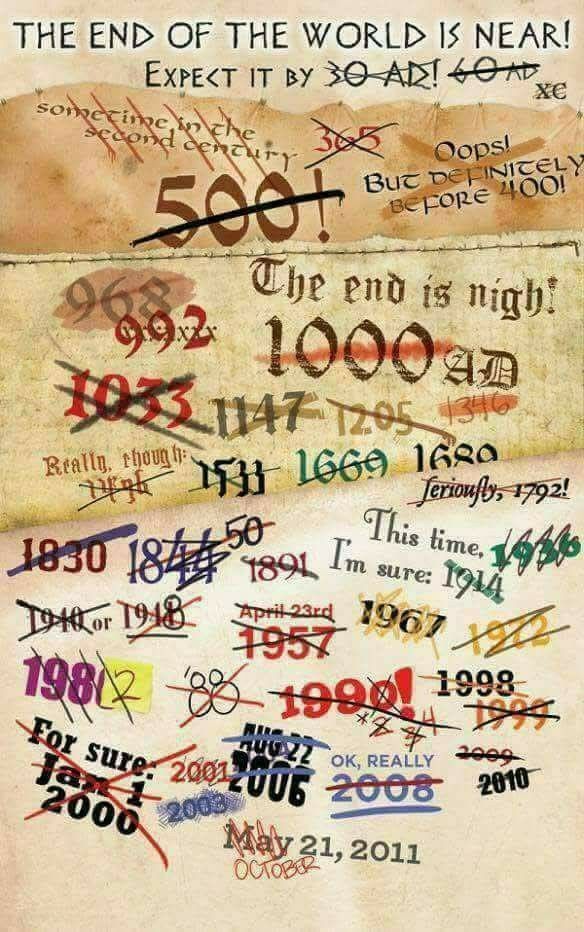 THE END OF THE WORLD IS NEAR!
EXPECT IT BY 30 AD! 60 AD
XC
sometime in the
second century
365
Oops!
BUT DEFINITELY
BEFORE 400!
500!
The end is nigh!
968
992
1000 AD
1033
1147
1205
1346
Really, though:
1533
1669
1689
Seriously, 1792!
1830
1844
50
1891
This time,
I'm sure: 1914
1936
1940 or 1948
April 23rd
1957
1967
1972
1981
2
'88
1990!
*2 *4
1998
1999
For sure:
Jan 1
2000
2001
2003
AUG 22
2006
OK, REALLY
2008
2009
2010
May 21, 2011
OCTOBER